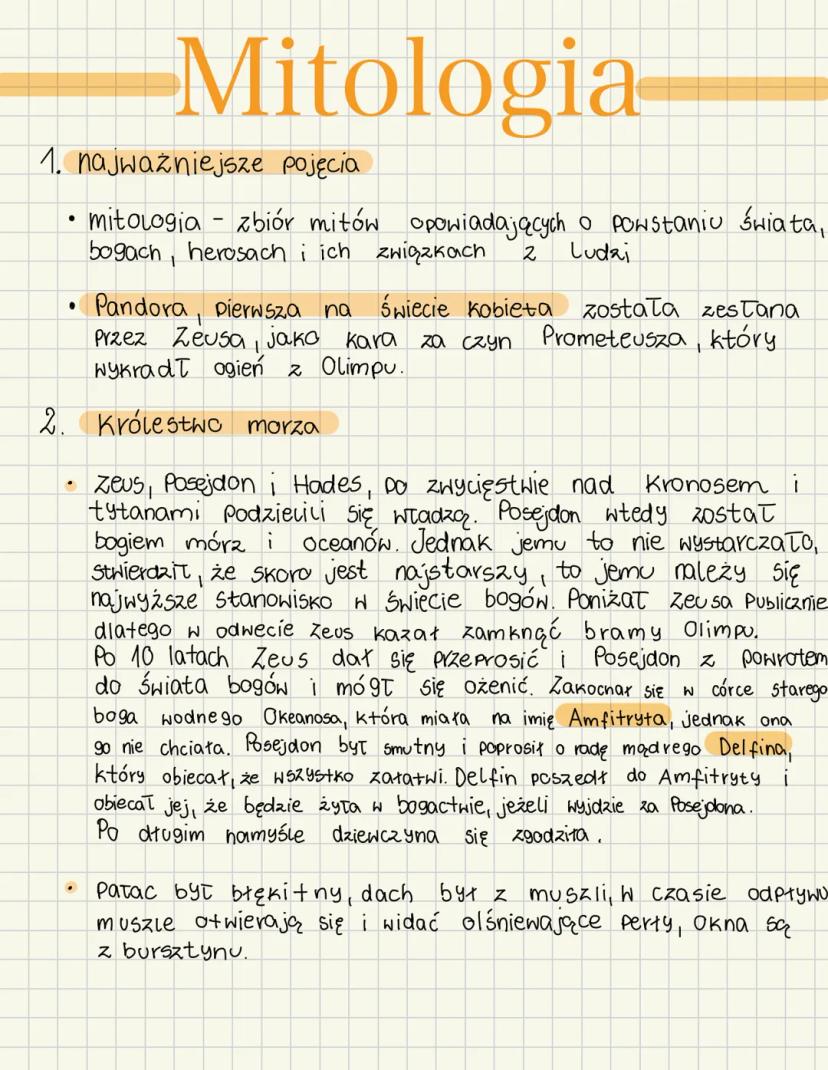 Mitologia
1. najważniejsze pojęcia
• mitologia - zbiór mitów opowiadających o powstaniu świata,
bogach, herosach i ich związkach z ludzi
• Pandora, pierwsza na świecie kobieta została zesłana
przez Zeusa, jako kara za czyn Prometeusza, który
wykradł ogień z Olimpu.
2. Królestwo morza
• Zeus, Posejdon i Hades, po zwycięstwie nad Kronosem i
tytanami podzielili się władzą. Posejdon wtedy został
bogiem mórz i oceanów. Jednak jemu to nie wystarczało,
stwierdził, że skoro jest najstarszy, to jemu należy się
najwyższe stanowisko w świecie bogów. Poniżał Zeusa publicznie
dlatego w odwecie Zeus kazał zamknąć bramy Olimpu.
Po 10 latach Zeus dał się przeprosić i Posejdon z powrotem
do świata bogów i mógł się ożenić. Zakochał się w córce starego
boga wodnego Okeanosa, która miała na imię Amfitryta, jednak ona
go nie chciała. Posejdon był smutny i poprosił o radę mądrego Delfina,
który obiecał, że wszystko załatwi. Delfin poszedł do Amfitryty i
obiecał jej, że będzie żyła w bogactwie, jeżeli wyjdzie za Posejdona.
Po długim namyśle dziewczyna się zgodziła.
• Pałac był błękitny, dach był z muszli, w czasie odpływu
muszle otwierają się i widać olśniewające perły, okna są
z bursztynu.